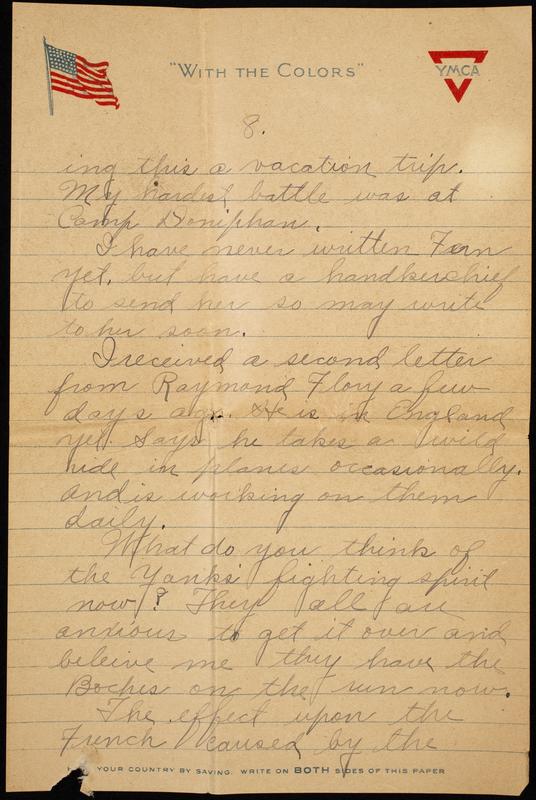 "WITH THE COLORS"
YMCA
8.
ing this a vacation trip.
My hardest battle was at
Camp Doniphan.
I have never written Fern
yet, but have a handkerchief
to send her so may write
to her soon.
I received a second letter
from Raymond Flory a few
days ago. He is in England
yet. Says he takes a wild
ride in planes occasionally.
and is working on them
daily.
What do you think of
the Yanks' fighting spirit
now? They all are
anxious to get it over and
beleive me they have the
Boches on the run now.
The effect upon the
French caused by the
YOUR COUNTRY BY SAVING. WRITE ON BOTH SIDES OF THIS PAPER